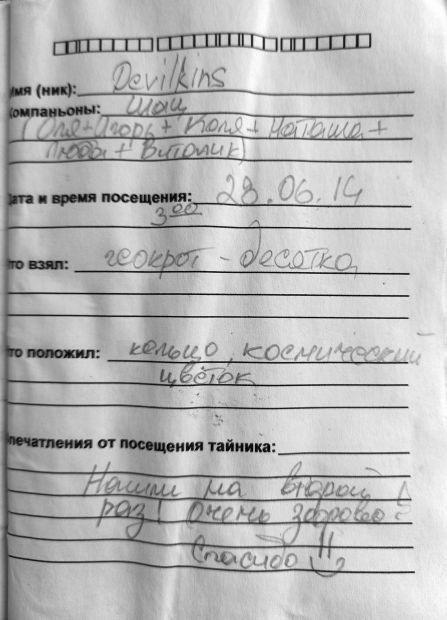 мя (ник): Devilkins
омпаньоны: Шащ
(Оля+Игорь + Коля + Наташа +
Люба + Виталик)
ата и время посещения: 28.06.14
3 00
то взял: геокрот - десятка
то положил: кольцо, космический
цветок
печатления от посещения тайника:
Нашли на второй
раз! Очень здорово!
Спасибо!!